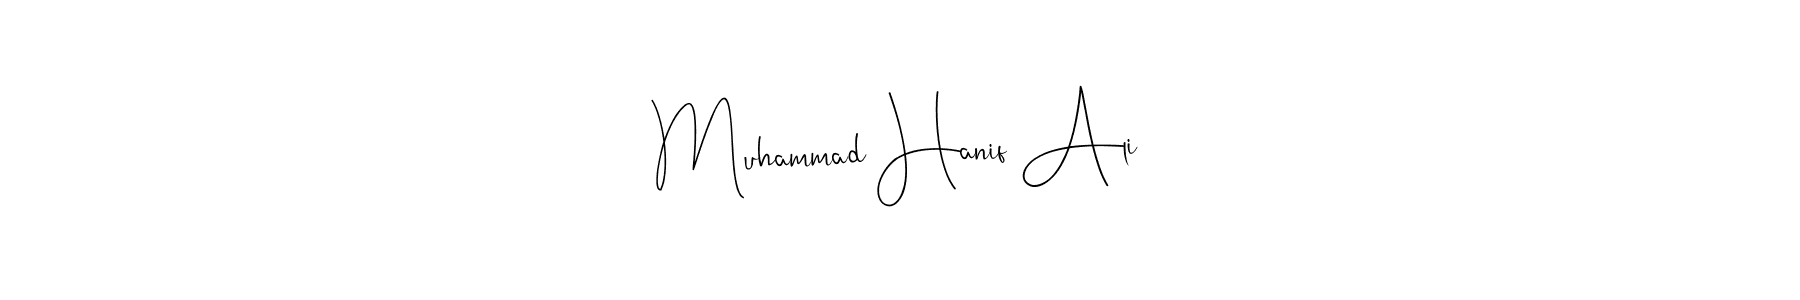 Muhammad Hanif Ali